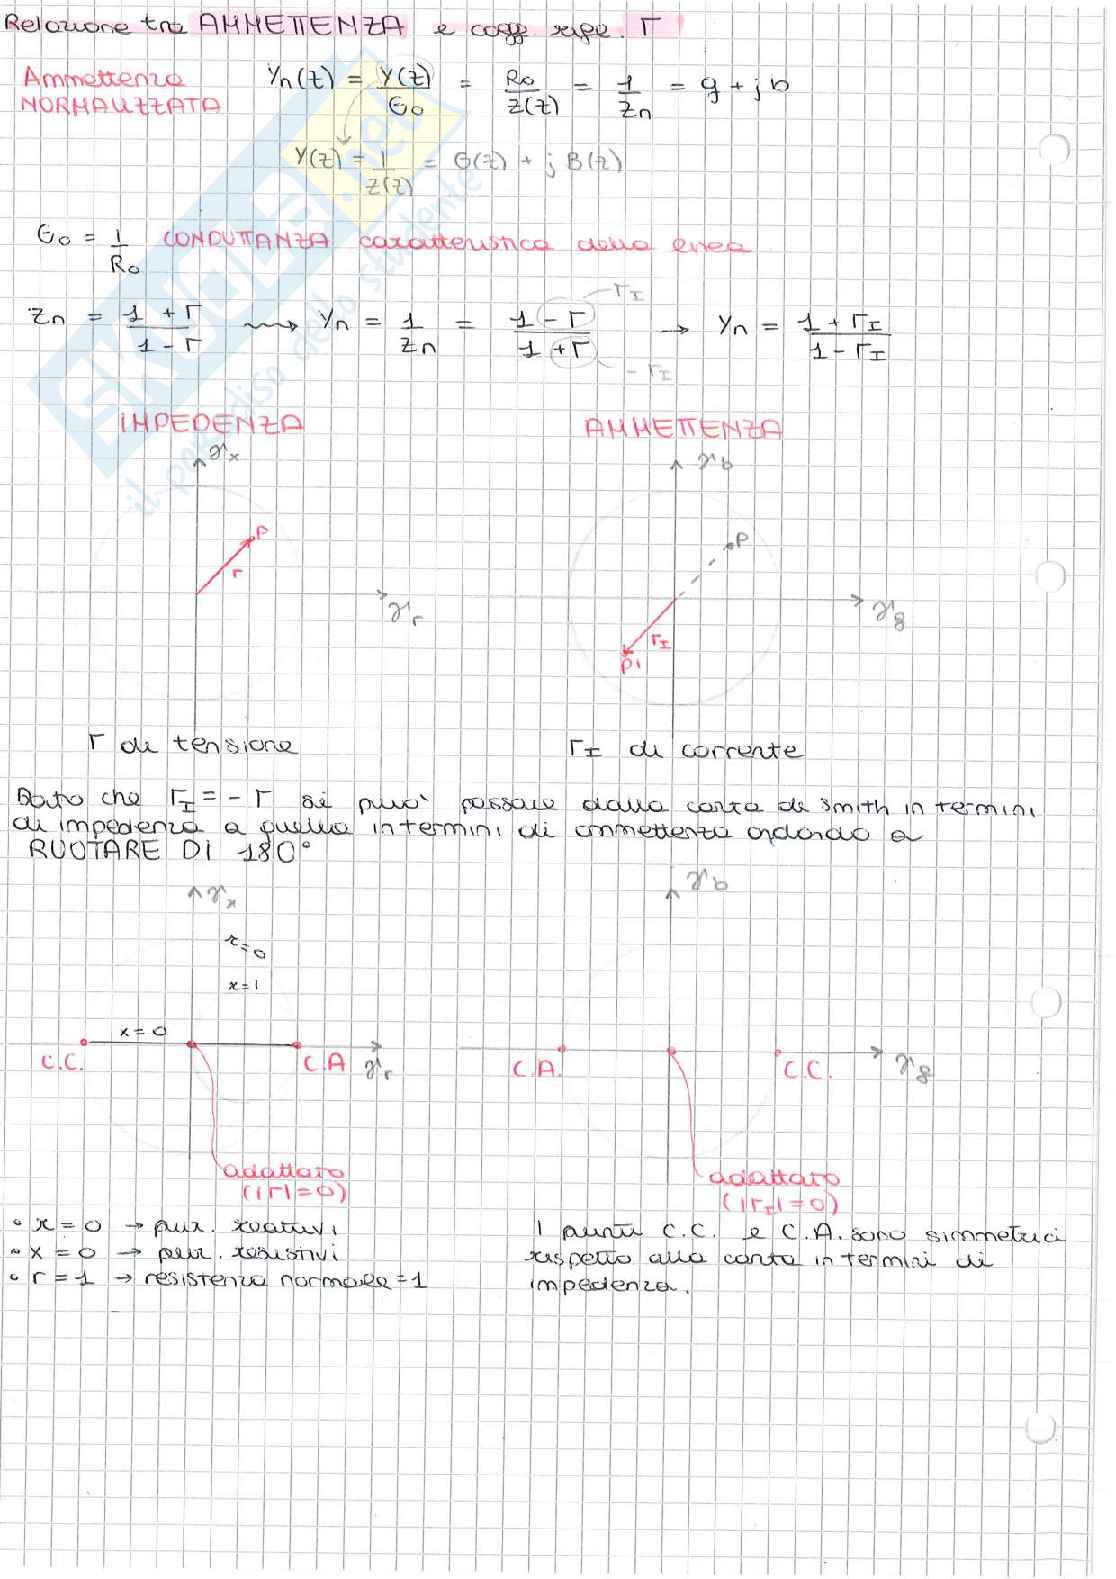 Relazione tra AMMETTENZA e coeff rifle. Γ
Ammettenza NORMALIZZATA
Yn(z) = Y(z)/G0 = R0/Z(z) = 1/Zn = g + jb
Y(z) = 1/Z(z) = G(z) + j B(z)
G0 = 1/R0 CONDUTTANZA caratteristica della linea
Zn = (1 + Γ)/(1 - Γ) ⟿ Yn = 1/Zn = (1 - Γ)/(1 + Γ) → Yn = (1 + ΓI)/(1 - ΓI)
ΓI
- ΓI
IMPEDENZA
AMMETTENZA
γx
P
Γ
γr
γb
P
γg
ΓI
P'
Γ di tensione
ΓI di corrente
Dato che ΓI = - Γ si può passare dalla carta di Smith in termini
di impedenza a quella in termini di ammettenza andando a
RUOTARE DI 180°
γx
r=0
x=1
x=0
C.C.
C.A
γr
adattato
(|Γ|=0)
γb
C.A.
C.C.
γg
adattato
(|ΓI|=0)
• r = 0 → pur. reattivi
• x = 0 → pur. resistivi
• r = 1 → resistenza normale = 1
I punti C.C. e C.A. sono simmetrici
rispetto alla carta in termini di
impedenza.
SKUOLA.net
il paradiso dello studente